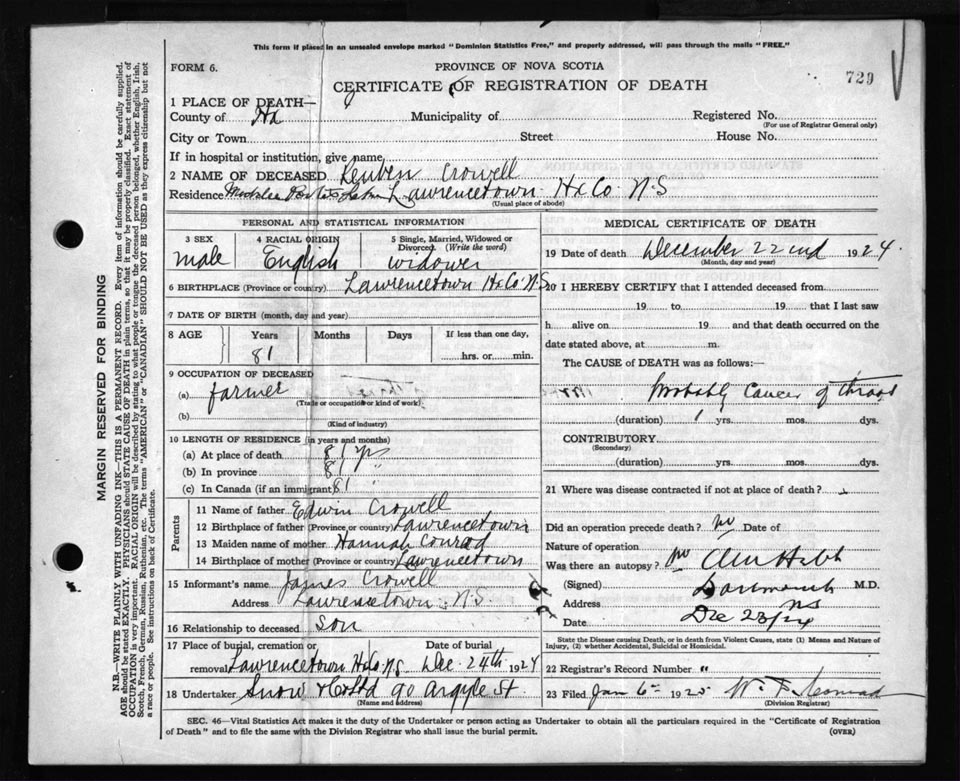 This form if placed in an unsealed envelope marked "Dominion Statistics Free," and properly addressed, will pass through the mails "FREE."
FORM 6.
PROVINCE OF NOVA SCOTIA
729
CERTIFICATE OF REGISTRATION OF DEATH
1 PLACE OF DEATH—
County of Hx Municipality of Registered No.
(For use of Registrar General only)
City or Town Street House No.
If in hospital or institution, give name
2 NAME OF DECEASED Reuben Crowell
Residence Lawrencetown Hx Co. N.S
(Usual place of abode)
PERSONAL AND STATISTICAL INFORMATION
3 SEX male
4 RACIAL ORIGIN English
5 Single, Married, Widowed or Divorced (Write the word) widower
6 BIRTHPLACE (Province or country) Lawrencetown Hx Co. N.S
7 DATE OF BIRTH (month, day and year)
8 AGE Years Months Days If less than one day,
81 hrs. or min.
9 OCCUPATION OF DECEASED
(a) farmer
(Trade or occupation or kind of work)
(b)
(Kind of industry)
10 LENGTH OF RESIDENCE (in years and months)
(a) At place of death 81 yrs
(b) In province 81 "
(c) In Canada (if an immigrant) 81 "
Parents
11 Name of father Edwin Crowell
12 Birthplace of father (Province or country) Lawrencetown
13 Maiden name of mother Hannah Conrad
14 Birthplace of mother (Province or country) Lawrencetown
15 Informant's name James Crowell
Address Lawrencetown N.S.
16 Relationship to deceased son
17 Place of burial, cremation or Date of burial
removal Lawrencetown Hx Co NS Dec. 24th 1924
18 Undertaker Snow & Co Ltd 90 Argyle St.
(Name and address)
MEDICAL CERTIFICATE OF DEATH
19 Date of death December 22nd 1924
(Month, day and year)
20 I HEREBY CERTIFY that I attended deceased from
19 to 19 that I last saw
h alive on 19 and that death occurred on the
date stated above, at m.
The CAUSE of DEATH was as follows:—
Probably Cancer of throat
(duration) 1 yrs. mos. dys.
CONTRIBUTORY
(Secondary)
(duration) yrs. mos. dys.
21 Where was disease contracted if not at place of death?
Did an operation precede death? no Date of
Nature of operation
Was there an autopsy? no
(Signed) M.D.
Address Dartmouth NS
Date Dec 23/24
State the Disease causing Death, or in death from Violent Causes, state (1) Means and Nature of
Injury, (2) whether Accidental, Suicidal or Homicidal.
22 Registrar's Record Number "
23 Filed Jan 6th 1925 W. F.
(Division Registrar)
SEC. 46—Vital Statistics Act makes it the duty of the Undertaker or person acting as Undertaker to obtain all the particulars required in the "Certificate of Registration
of Death" and to file the same with the Division Registrar who shall issue the burial permit.
(OVER)
MARGIN RESERVED FOR BINDING
N.B.—WRITE PLAINLY WITH UNFADING INK—THIS IS A PERMANENT RECORD. Every item of information should be carefully supplied.
AGE should be stated EXACTLY. PHYSICIANS should STATE CAUSE OF DEATH in plain terms, so that it may be properly classified. Exact statement of
OCCUPATION is very important. RACIAL ORIGIN will be described by stating to what people or tongue the deceased person belonged, whether English, Irish,
Scotch, French, German, Russian, Ruthenian, etc. The terms "AMERICAN" or "CANADIAN" SHOULD NOT BE USED as they express citizenship but not
a race or people. See instructions on back of Certificate.